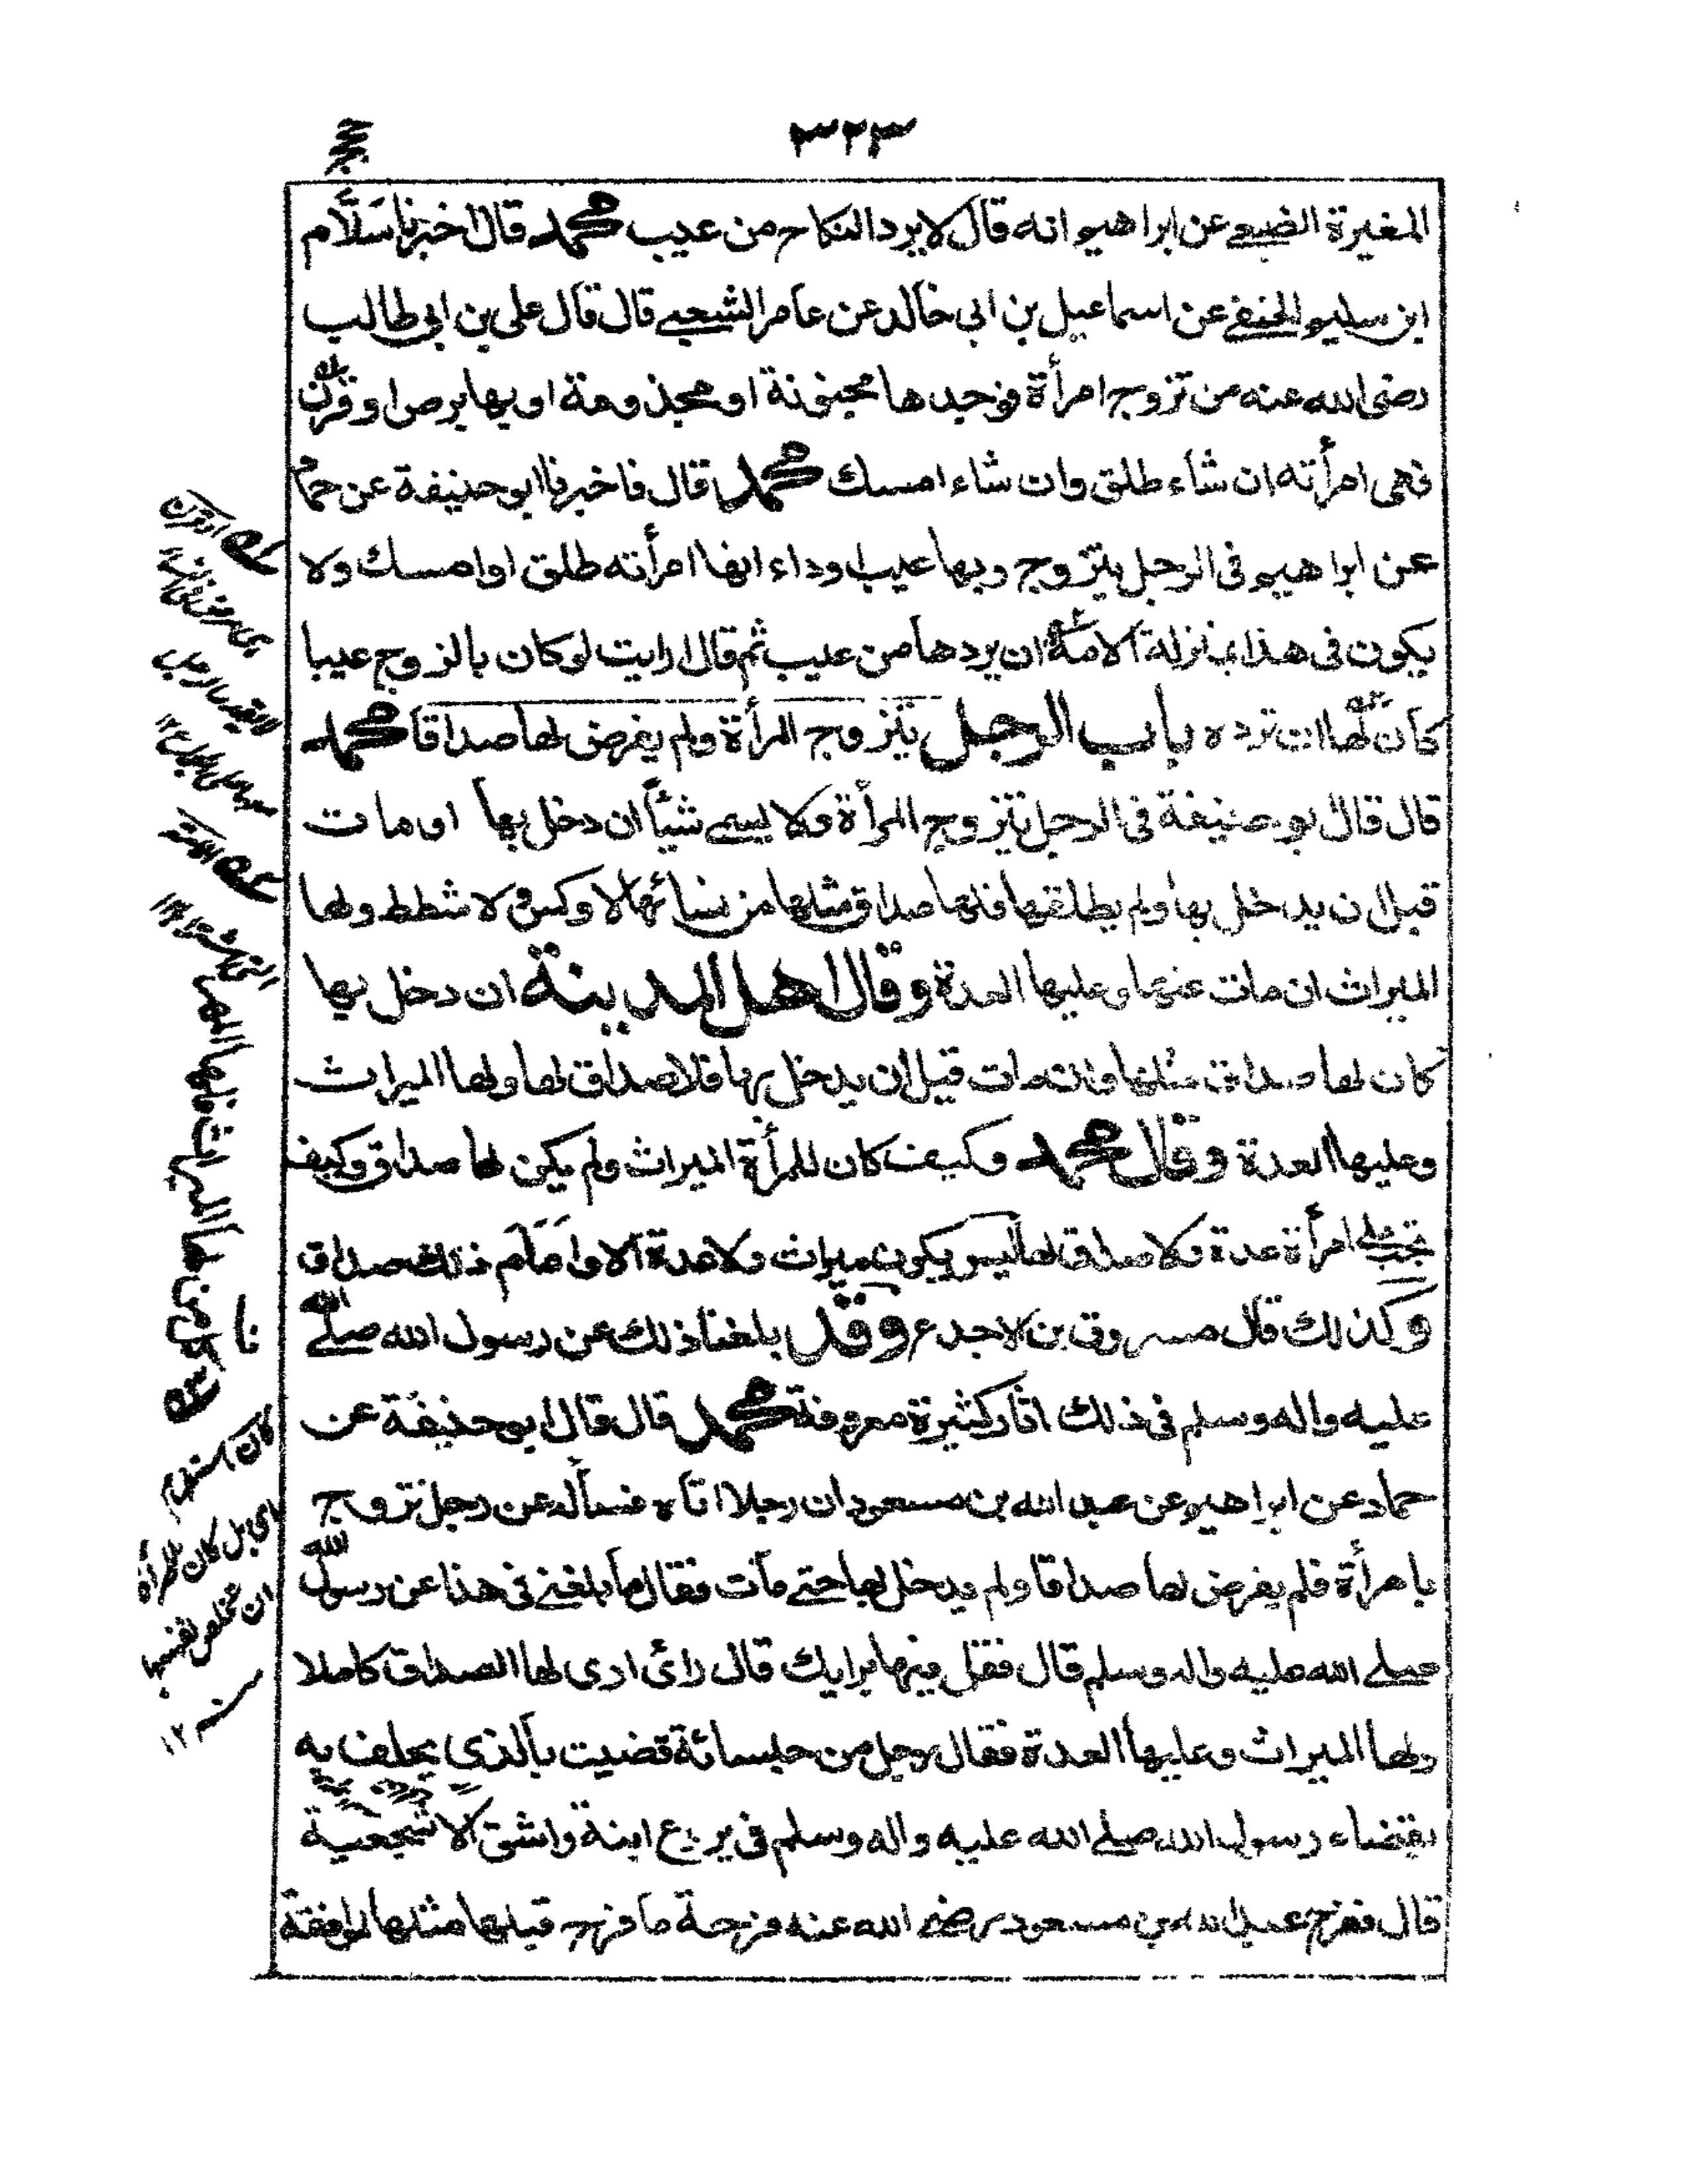 ٣٢٣
المغيرة الضبي عن ابراهيم انه قال لا يرد النكاح من عيب محمد قال اخبرنا سلام
ابن سليم الحنفي عن اسماعيل بن ابى خالد عن عامر الشعبي قال قال على بن ابى طالب
رضى الله عنه من تزوج امرأة فوجدها مجنونة او مجذومة او بها برص او قرن
فهى امرأته ان شاء طلق وان شاء امسك محمد قال فاخبرنا ابو حنيفة عن حماد
عن ابراهيم فى الرجل يتزوج وبها عيب او داء انها امرأته طلق او امسك ولا
يكون فى هذا بمنزلة الامة ان يردها من عيب ثم قال ارايت لو كان بالزوج عيبا
كان لها ان ترده باب الرجل يتزوج المرأة ولم يفرض لها صداقا محمد
قال قال ابو حنيفة فى الرجل يتزوج المرأة ولا يسمى شيأ ان دخل بها او مات
قبل ان يدخل بها ولم يطلقها فلها صداق مثلها من نسائها لا وكس ولا شطط ولها
الميراث ان مات عنها وعليها العدة وقال اهل المدينة ان دخل بها
كان لها صداق مثلها وان مات قبل ان يدخل بها فلا صداق لها ولها الميراث
وعليها العدة وقال محمد وكيف كان للمرأة الميراث ولم يكن لها صداق وكيف
تجب على امرأة عدة ولا صداق لها ليس يكون ميراث ولا عدة الا وامام ذلك صداق
وكذلك قال مسروق بن الاجدع وقد بلغنا ذلك عن رسول الله صلى الله
عليه واله وسلم فى ذلك اثار كثيرة معروفة محمد قال قال ابو حنيفة عن
حماد عن ابراهيم عن عبد الله بن مسعود ان رجلا اتاه فسأله عن رجل تزوج
بامرأة فلم يفرض لها صداقا ولم يدخل بها حتى مات فقال ما بلغنى فى هذا عن رسول الله
صلى الله عليه واله وسلم قال فقل فيها برايك قال رائى ارى لها الصداق كاملا
ولها الميراث وعليها العدة فقال رجل من جلسائه قضيت بالذى يحلف به
بقضاء رسول الله صلى الله عليه واله وسلم فى بروع ابنة واشق الاشجعية
قال ففرح عبد الله بن مسعود رضى الله عنه فرحة ما فرح قبلها مثلها لموافقة